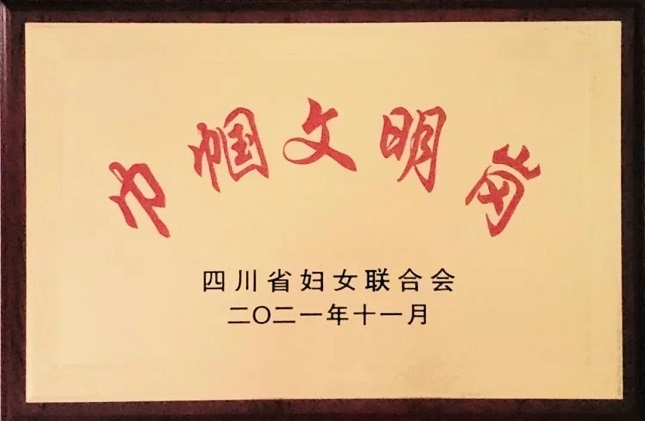 巾帼文明岗
四川省妇女联合会
二〇二一年十一月